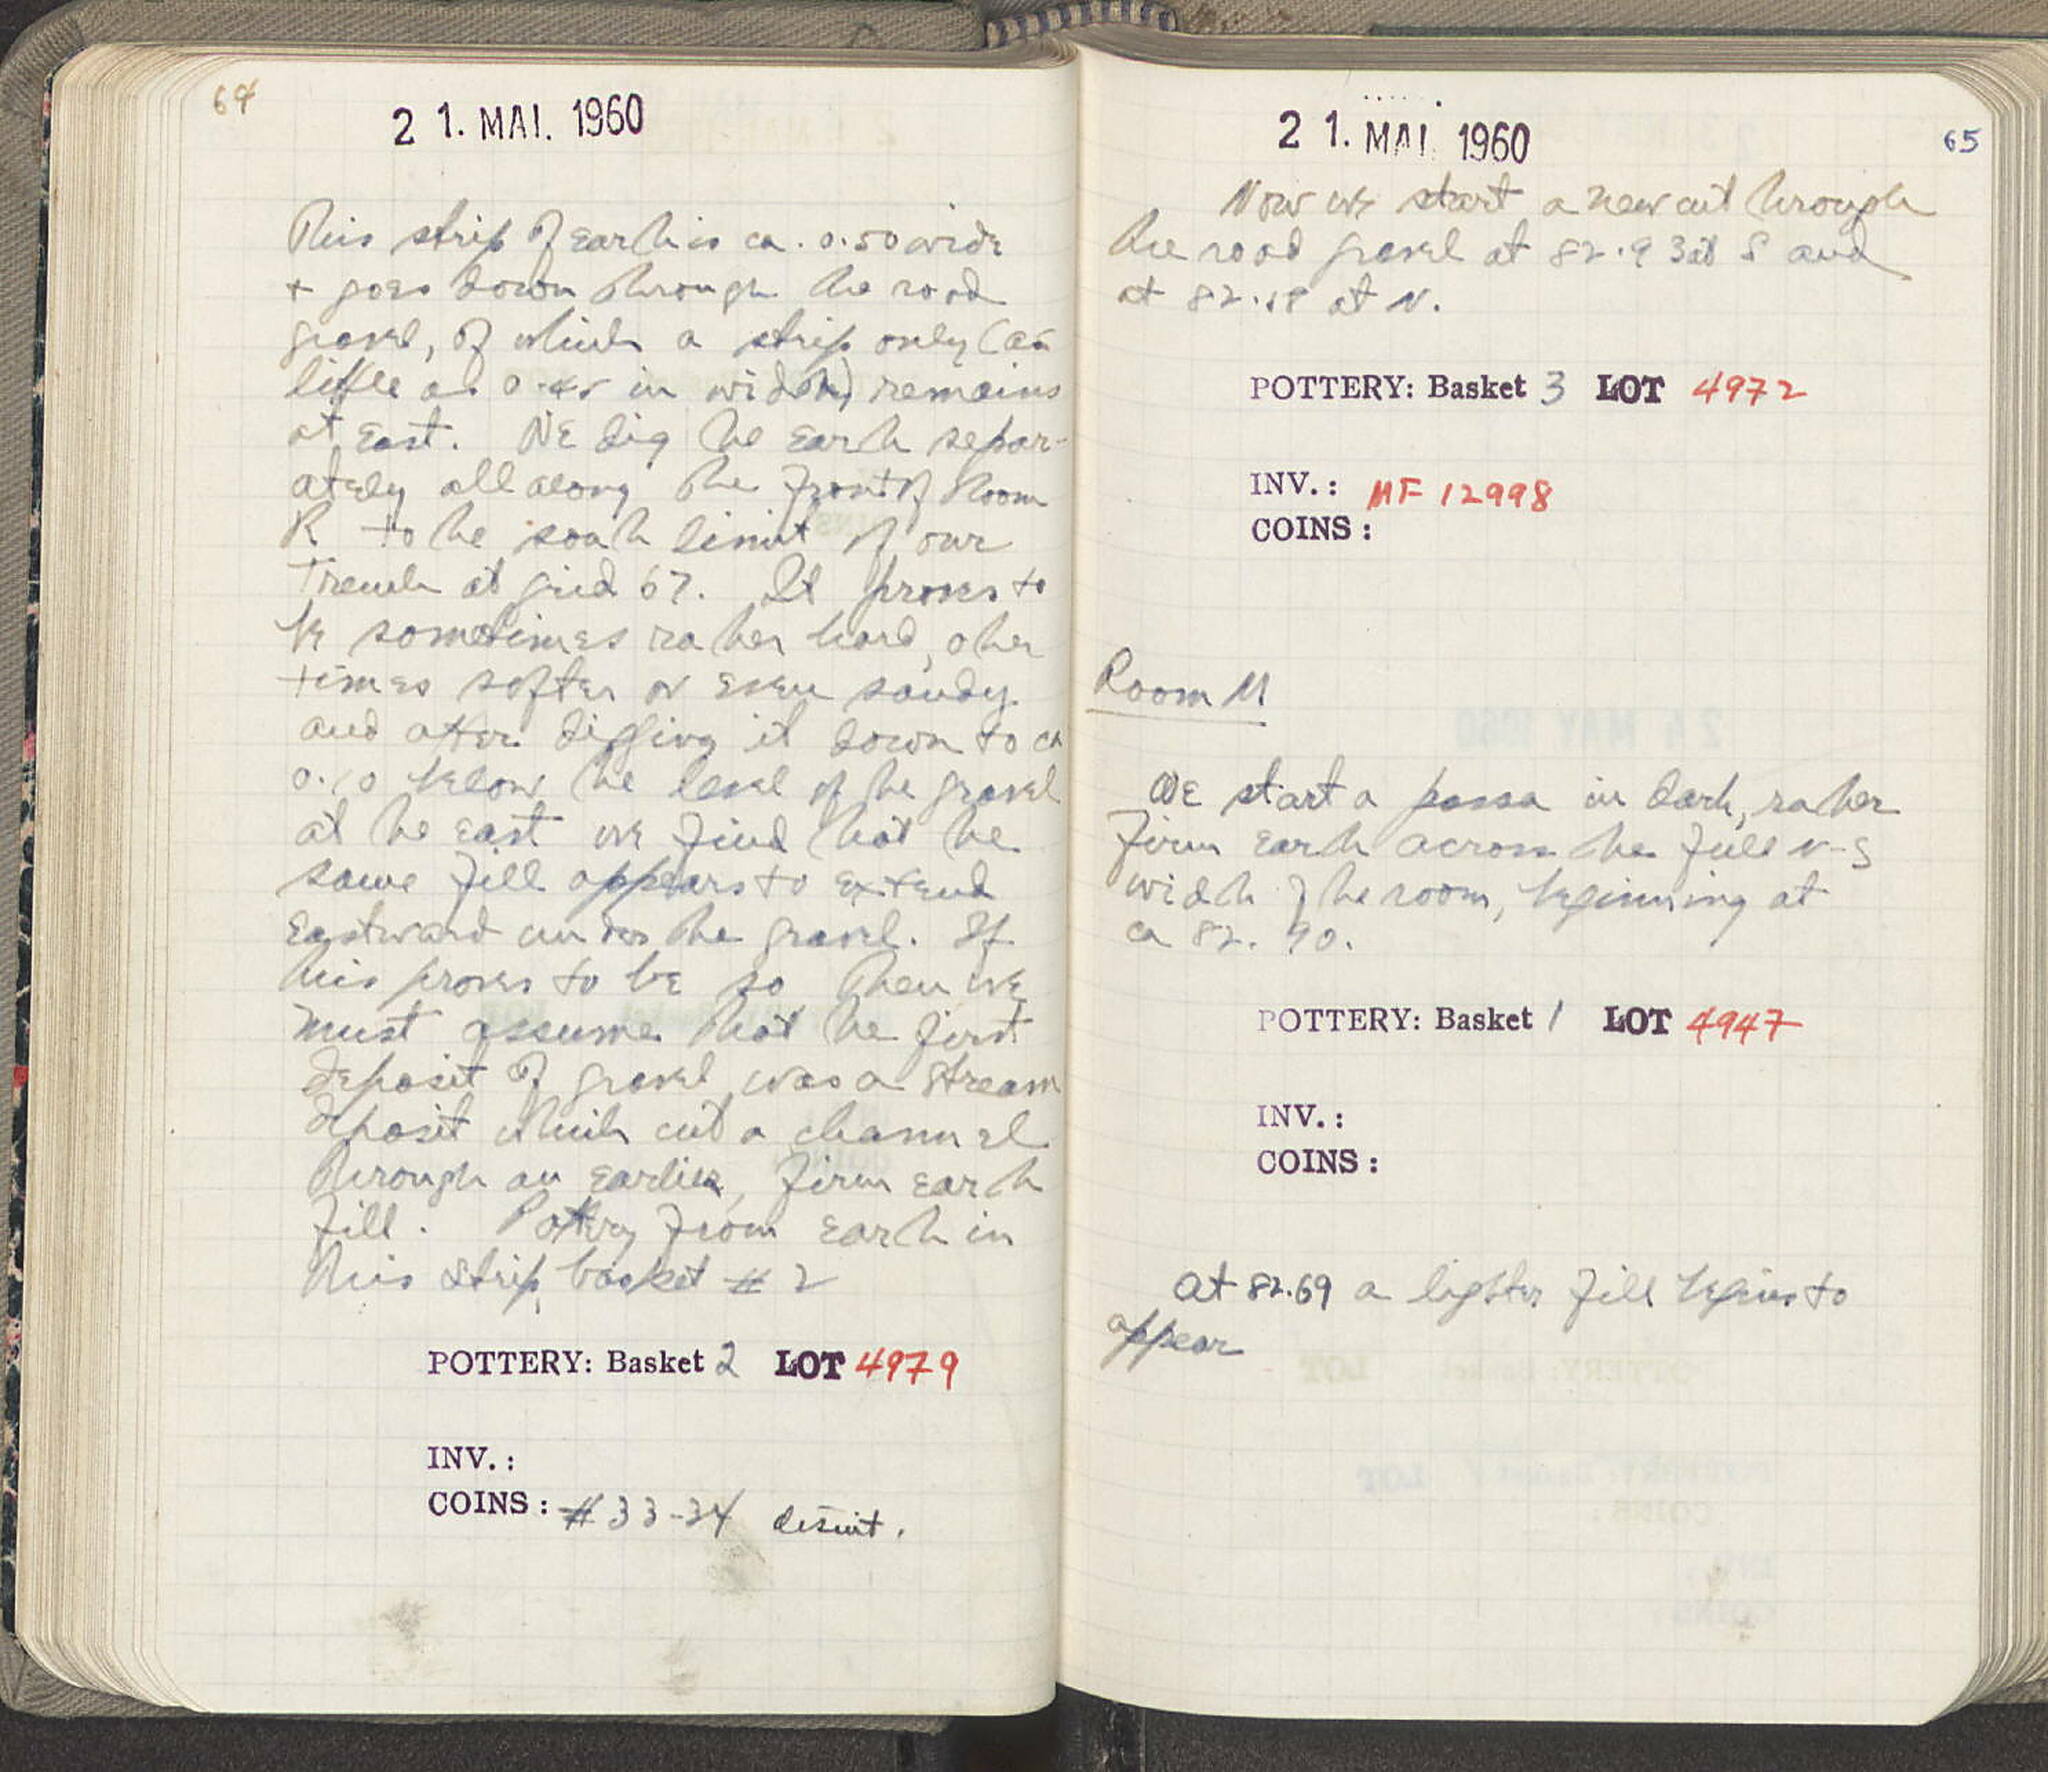 64
21. MAI. 1960
This strip of earth is ca. 0.50 wide
+ goes down through the road
gravel, of which a strip only (as
little as 0.45 in width) remains
at East. We dig the earth separ-
ately all along the front of Room
R to the south limit of our
Trench at grid 67. It proves to
be sometimes rather hard, other
times softer or even sandy
and after digging it down to ca
0.10 below the level of the gravel
at the east we find that the
same fill appears to extend
Eastward under the gravel. If
this proves to be so then we
must assume that the first
deposit of gravel was a stream
deposit which cut a channel
through an earlier, firm earth
fill. Pottery from earth in
this strip, basket #2
POTTERY: Basket 2 LOT 4979
INV.:
COINS: #33-34 desint.
21. MAI. 1960
65
Now we start a new cut through
the road gravel at 82.93 at S and
at 82. at N.
POTTERY: Basket 3 LOT 4972
INV.: MF 12998
COINS:
Room M
We start a passa in dark, rather
firm earth across the full N-S
width of the room, beginning at
ca 82.90.
POTTERY: Basket 1 LOT 4947
INV.:
COINS:
At 82.69 a lighter fill begins to
appear